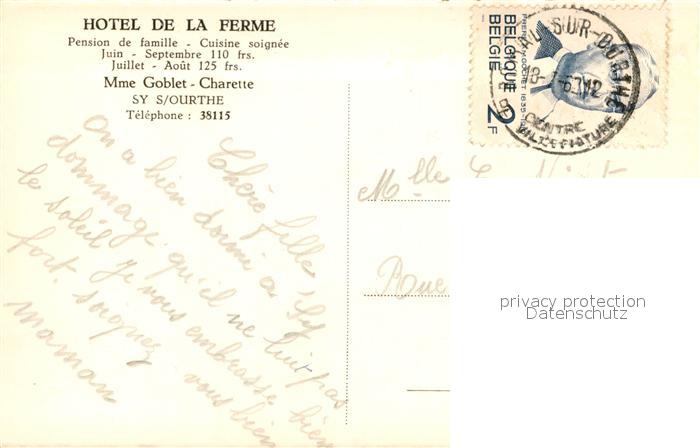 HOTEL DE LA FERME
Pension de famille - Cuisine soignée
Juin - Septembre 110 frs.
Juillet - Août 125 frs.
Mme Goblet - Charette
SY S/OURTHE
Téléphone : 38115
BELGIQUE
BELGIE
2F
SUR-OURTHE
CENTRE
VILLEGIATURE
Chère fille,
On a bien dormi à Sy
dommage qu'il ne luit pas
le soleil Je vous embrasse bien
fort. soignez vous bien
maman
Mlle
Rue
privacy protection
Datenschutz